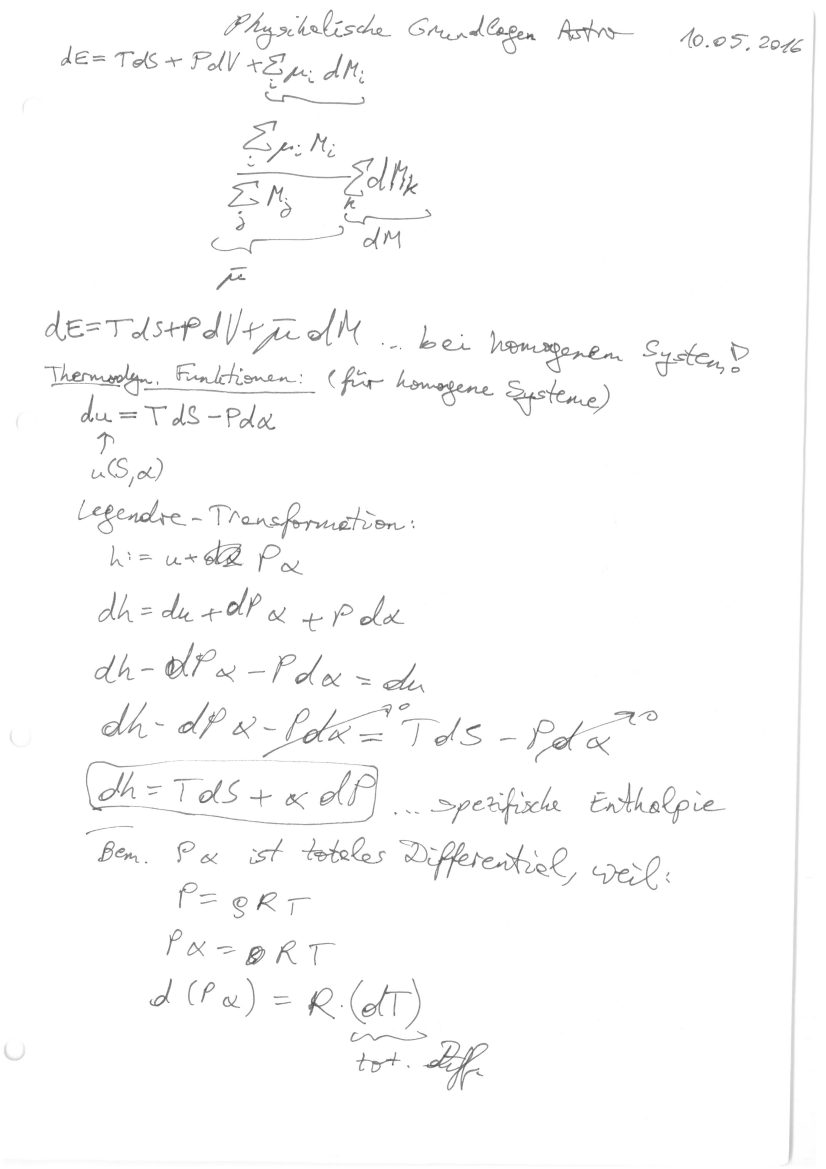 Physikalische Grundlagen Astro 10.05.2016
dE = TdS + PdV + Σ_i μ_i dM_i
Σ_i μ_i M_i
Σ_j M_j
Σ_k dM_k
dM
μ̄
dE = TdS + PdV + μ̄ dM ... bei homogenem System!
Thermodyn. Funktionen: (für homogene Systeme)
du = TdS - Pdα
↑
u(S,α)
Legendre-Transformation:
h := u + Pα
dh = du + dP α + P dα
dh - dP α - P dα = du
dh - dP α - P dα →0 = TdS - P dα →0
dh = TdS + α dP ... spezifische Enthalpie
Bem. Pα ist totales Differential, weil:
P = ρRT
Pα = RT
d(Pα) = R·(dT)
tot. Diff.